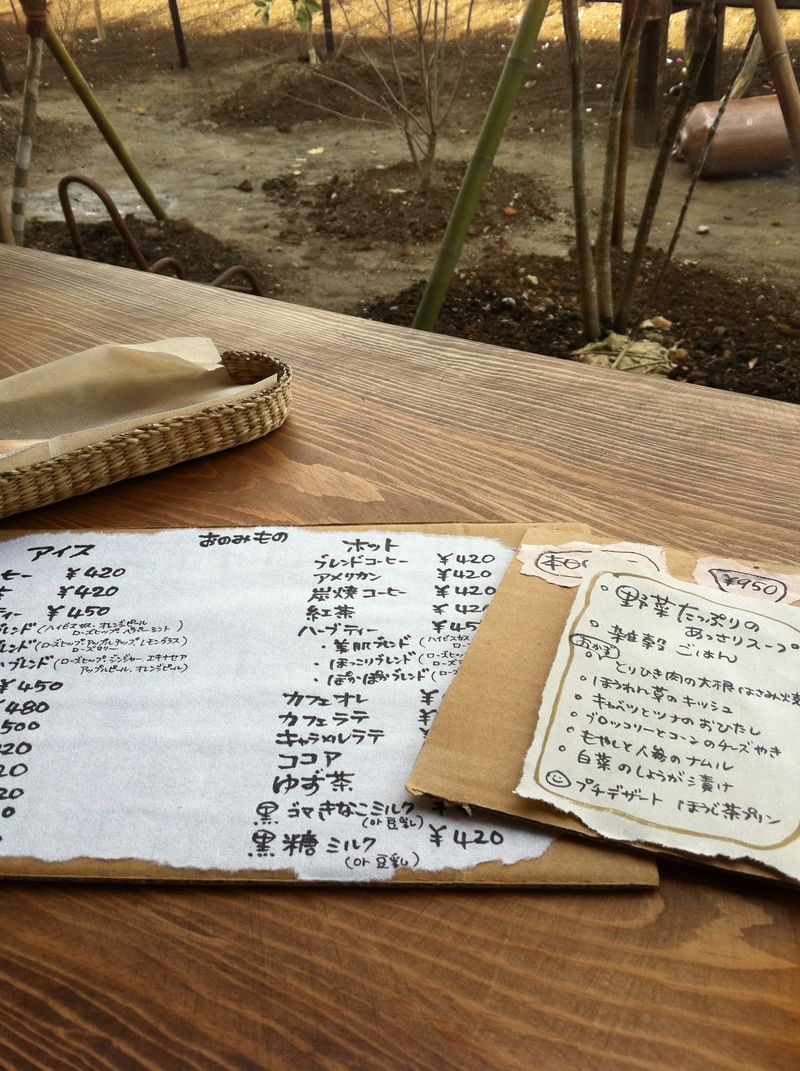 おのみもの
アイス
ヒー ¥420
¥420
ティー ¥450
ブレンド(ハイビスカス、オレンジピール
ローズヒップ、ペパーミント)
ブレンド(ローズヒップ、アップルチップ、レモングラス
ローズマリー)
ブレンド(ローズヒップ、ジンジャー、エキナセア
アップルピール、オレンジピール)
¥450
480
500
20
20
20
ホット
ブレンドコーヒー ¥420
アメリカン ¥420
炭焼コーヒー ¥420
紅茶 ¥42
ハーブティー ¥45
・美肌ブレンド
・ほっこりブレンド
・ぽかぽかブレンド
カフェオレ ¥
カフェラテ ¥
キャラメルラテ ¥
ココア
ゆず茶
黒ゴマきなこミルク
(or 豆乳)
黒糖ミルク ¥420
(or 豆乳)
¥950
・野菜たっぷりの
あっさりスープ
・雑穀ごはん
おかず
・とりひき肉の大根はさみ
・ほうれん草のキッシュ
・キャベツとツナのおひたし
・ブロッコリーとコーンのチーズやき
・もやしと人参のナムル
・白菜のしょうが漬け
プチデザート ほうじ茶プリン